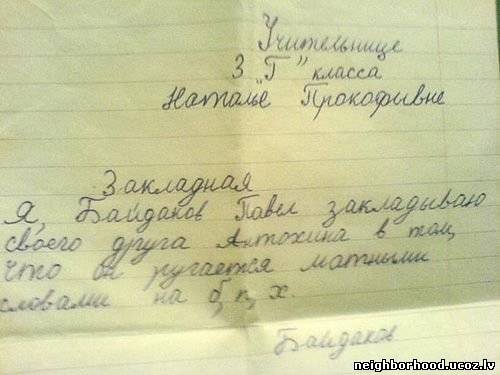 Учительнице
3 "Г" класса
Наталье Прокофивне
Закладная
Я, Байдаков Павел закладываю
своего друга Антохина в том,
что он ругается матными
словами на б, п, х.
Байдаков
neighborhood.ucoz.lv